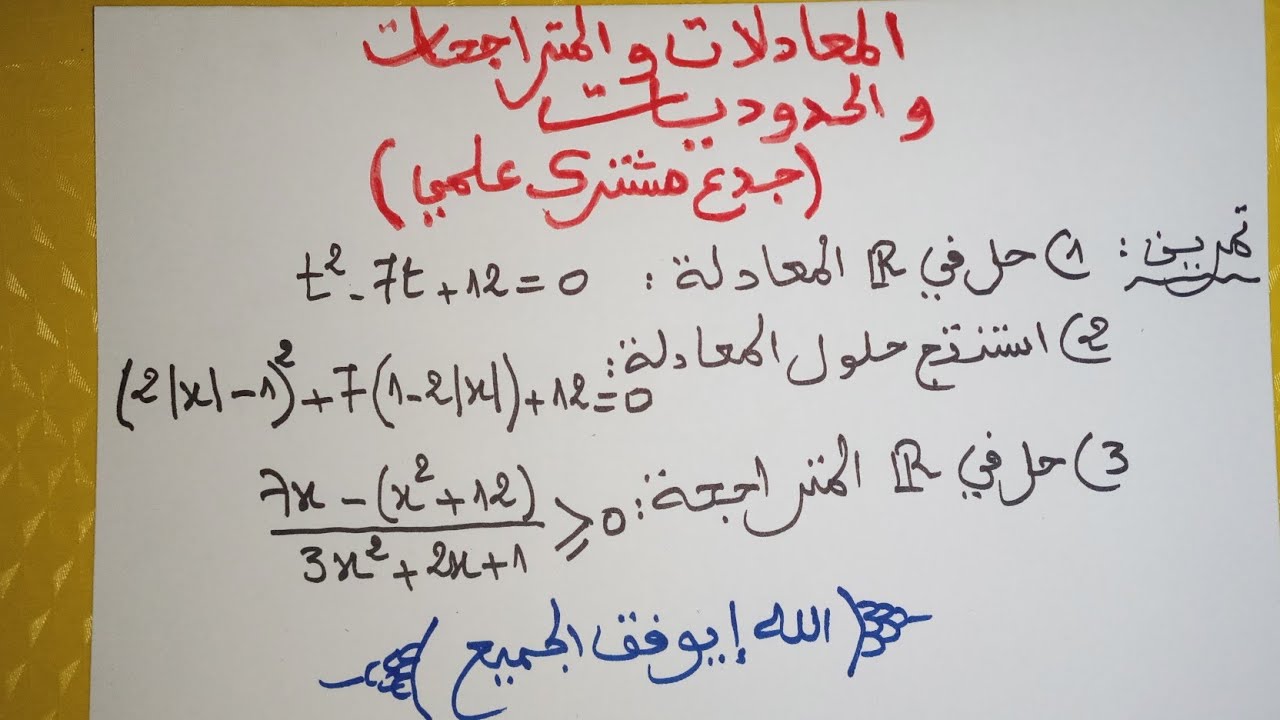 المعادلات والمتراجعات
والحدوديات
(جدع مشترك علمي)
تمرين: 1) حل في ℝ المعادلة: t² - 7t + 12 = 0
2) استنتج حلول المعادلة: (2|x| - 1)² + 7(1 - 2|x|) + 12 = 0
3) حل في ℝ المتراجحة: (7x - (x² + 12)) / (3x² + 2x + 1) ≥ 0
(الله إيوفق الجميع)